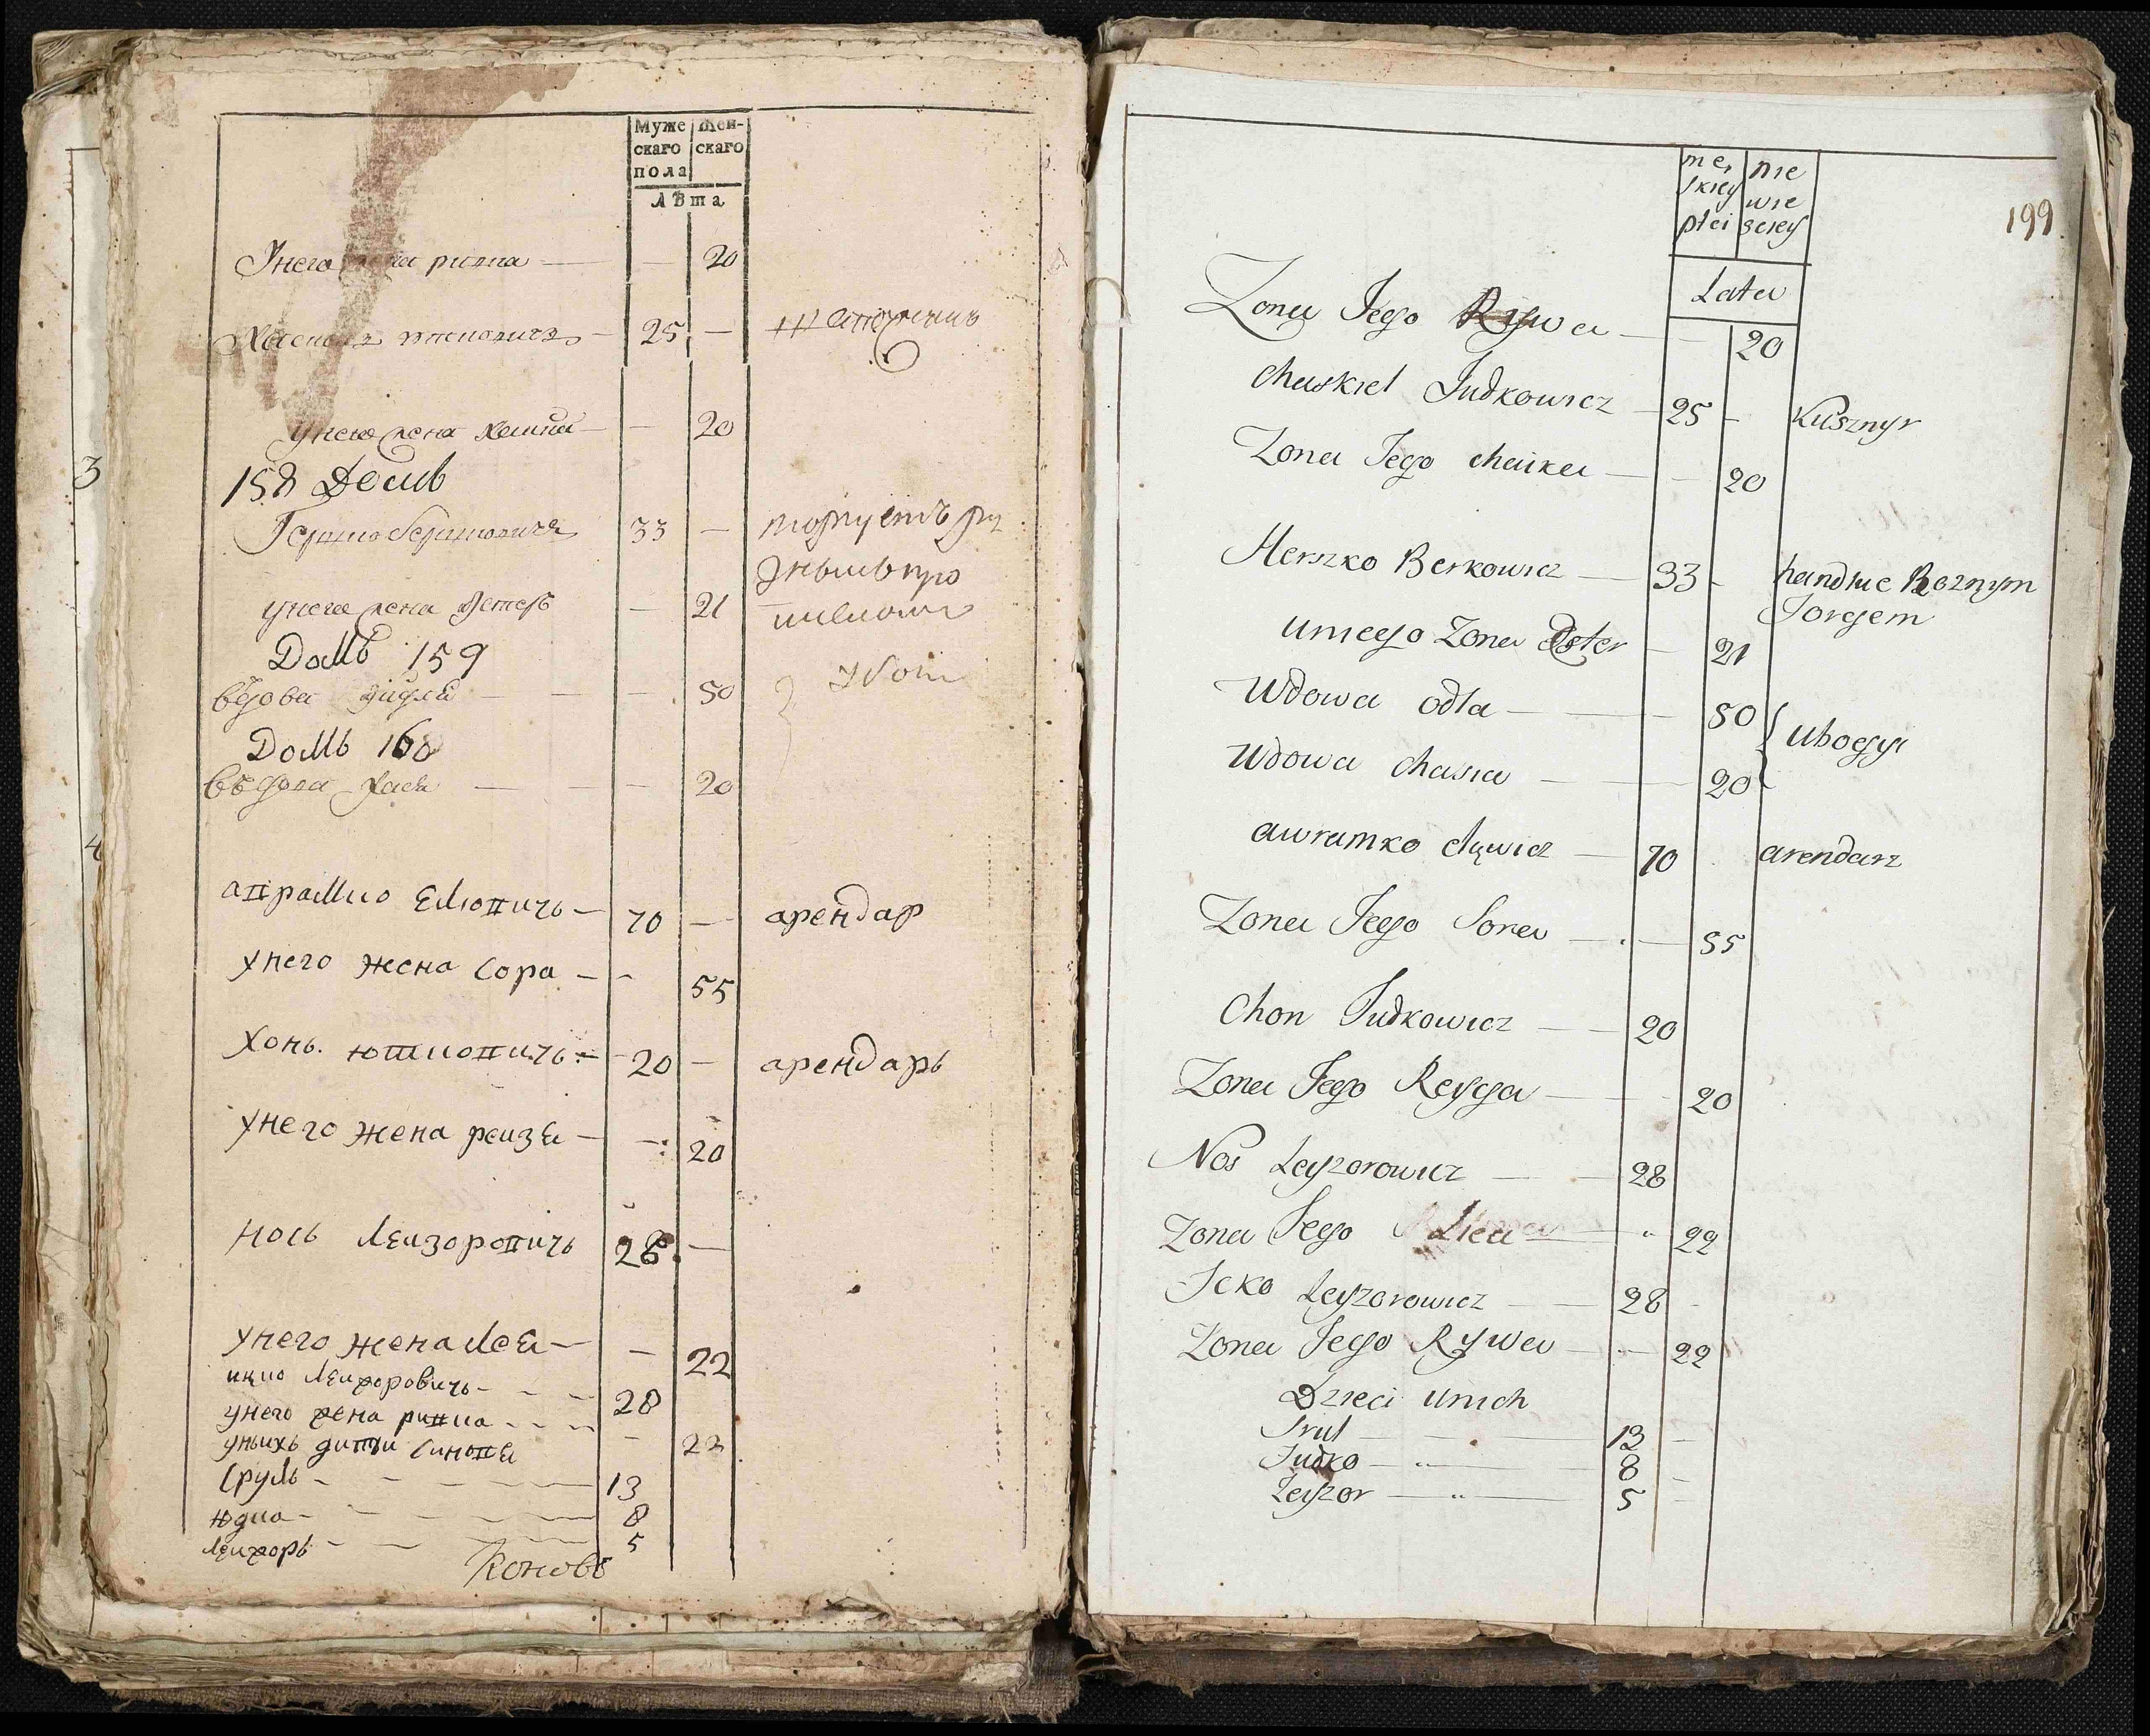 Муже
скаго
пола
Жен-
скаго
Лѣта
Унего рива — — 20
25 —
унего жена хаика — — 20
158 Домъ
Гершко берковичъ 33 — торгуетъ ра
зными про
унего жена Естерь — 21
Домъ 159
въдова Удля — — — 50
Домъ 160
въдова Хася — — — 20
апрамко Елiопичь — 70 — арендар
унего жена Сора — - 55
Хонь юткопичь — 20 — арендарь
унего жена реизя — — 20
Нось Леизоропичь 28 —
унего жена Лея — — 22
ицко Леизоровичь - - - 28
унего жена ривка - - - 22
уныхъ дитки
Сруль - — — — 13
юдка - — — — 8
Леизорь - — — 5
Коновъ
3
4
męskiey
płci
niewiesciey
Lata
199
Zona Jego Rywa — — 20
Chaskiel Judkowicz — 25 - Kusznyr
Zona Jego Chaika — - 20
Herszko Berkowicz — 33 - handluie Roznym
Toregem
Uniego Zona Ester — 21
Wdowa Odla — — 50 { Ubogyi
Wdowa Chasia — — 20
Awramko 70 arendarz
Zona Jego Sora — — 55
Chon Judkowicz — — 20
Zona Jego Reyzya — — 20
Nos Leyzorowicz — — 28
Zona Jego Liea — 22
Icko Leyzorowicz — — 28
Zona Jego Rywa — - 22
Dzieci Unich
Srul — — — 13 —
Judko — — 8 —
Leyzor — — 5 —